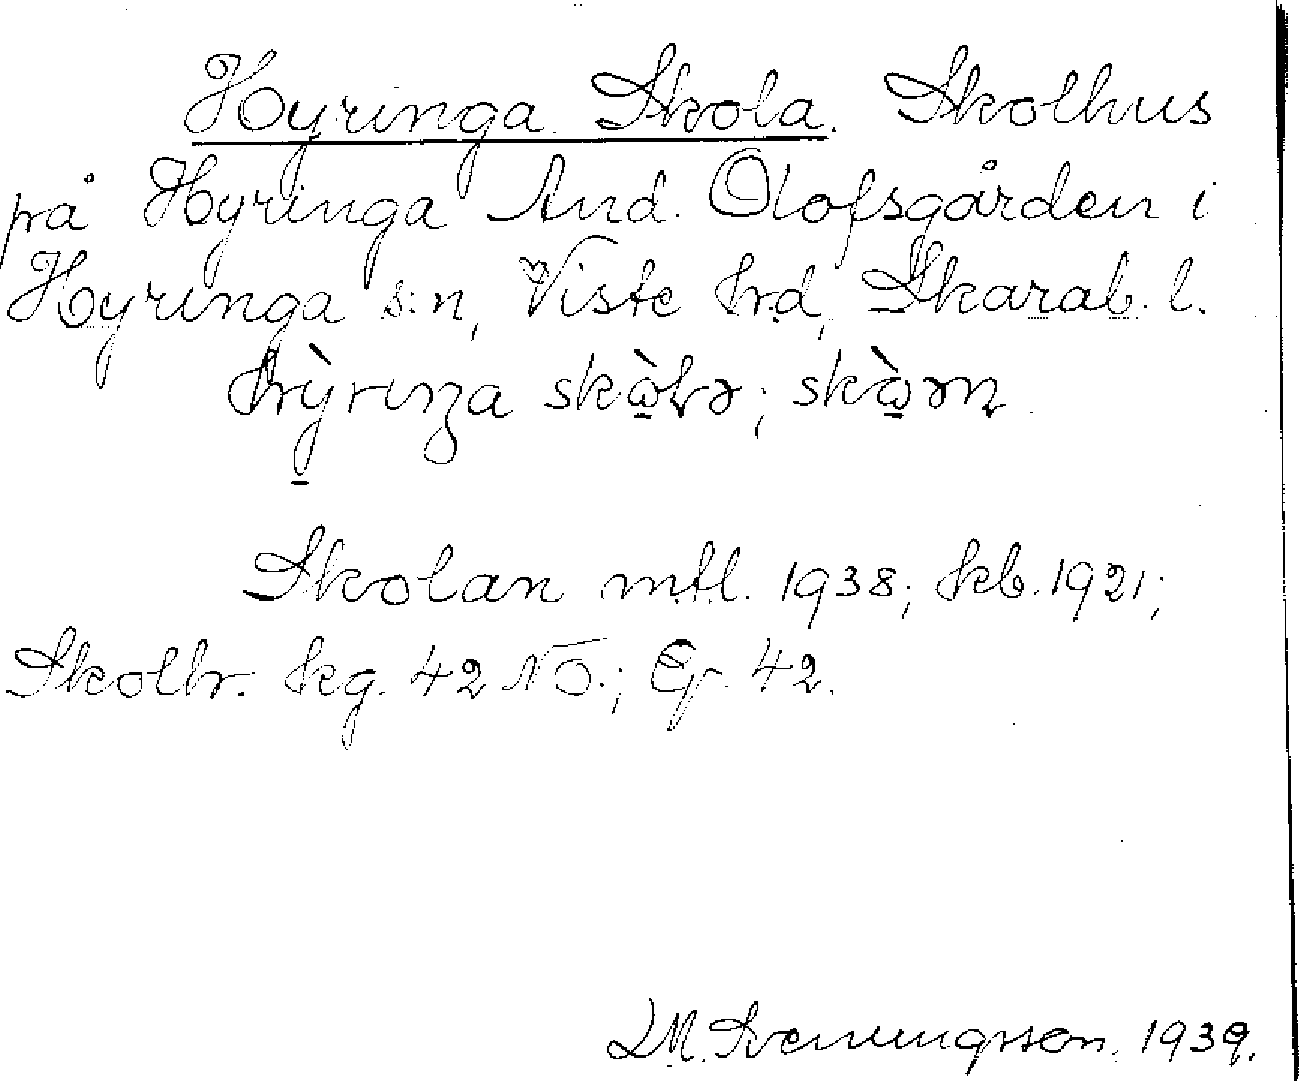 Hyringa Skola. Skolhus
på Hyringa And. Olofsgården i
Hyringa s:n, Viste hrd, Skarab. l.
hỳriŋa skò̤lɂ; skò̤ən
Skolan mtl. 1938; kb. 1921;
Skolh. kg. 42 NO.; Gp. 42.
D.M. Svenningsson. 1939.